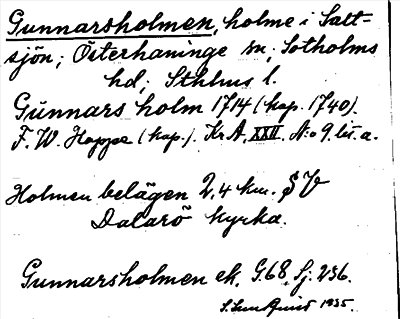 Gunnarsholmen, holme i Salt-
sjön; Österhaninge sn; Sotholms
hd; Sthlms l.
Gunnars holm 1714 (kop. 1740).
F. W. Hoppe (kop.). Kr A, XXII, A:o 9 lit. a.
Holmen belägen 2,4 km. SV
Dalarö kyrka.
Gunnarsholmen ek. G.68, Sj. 236.
S. Lundquist 1935.